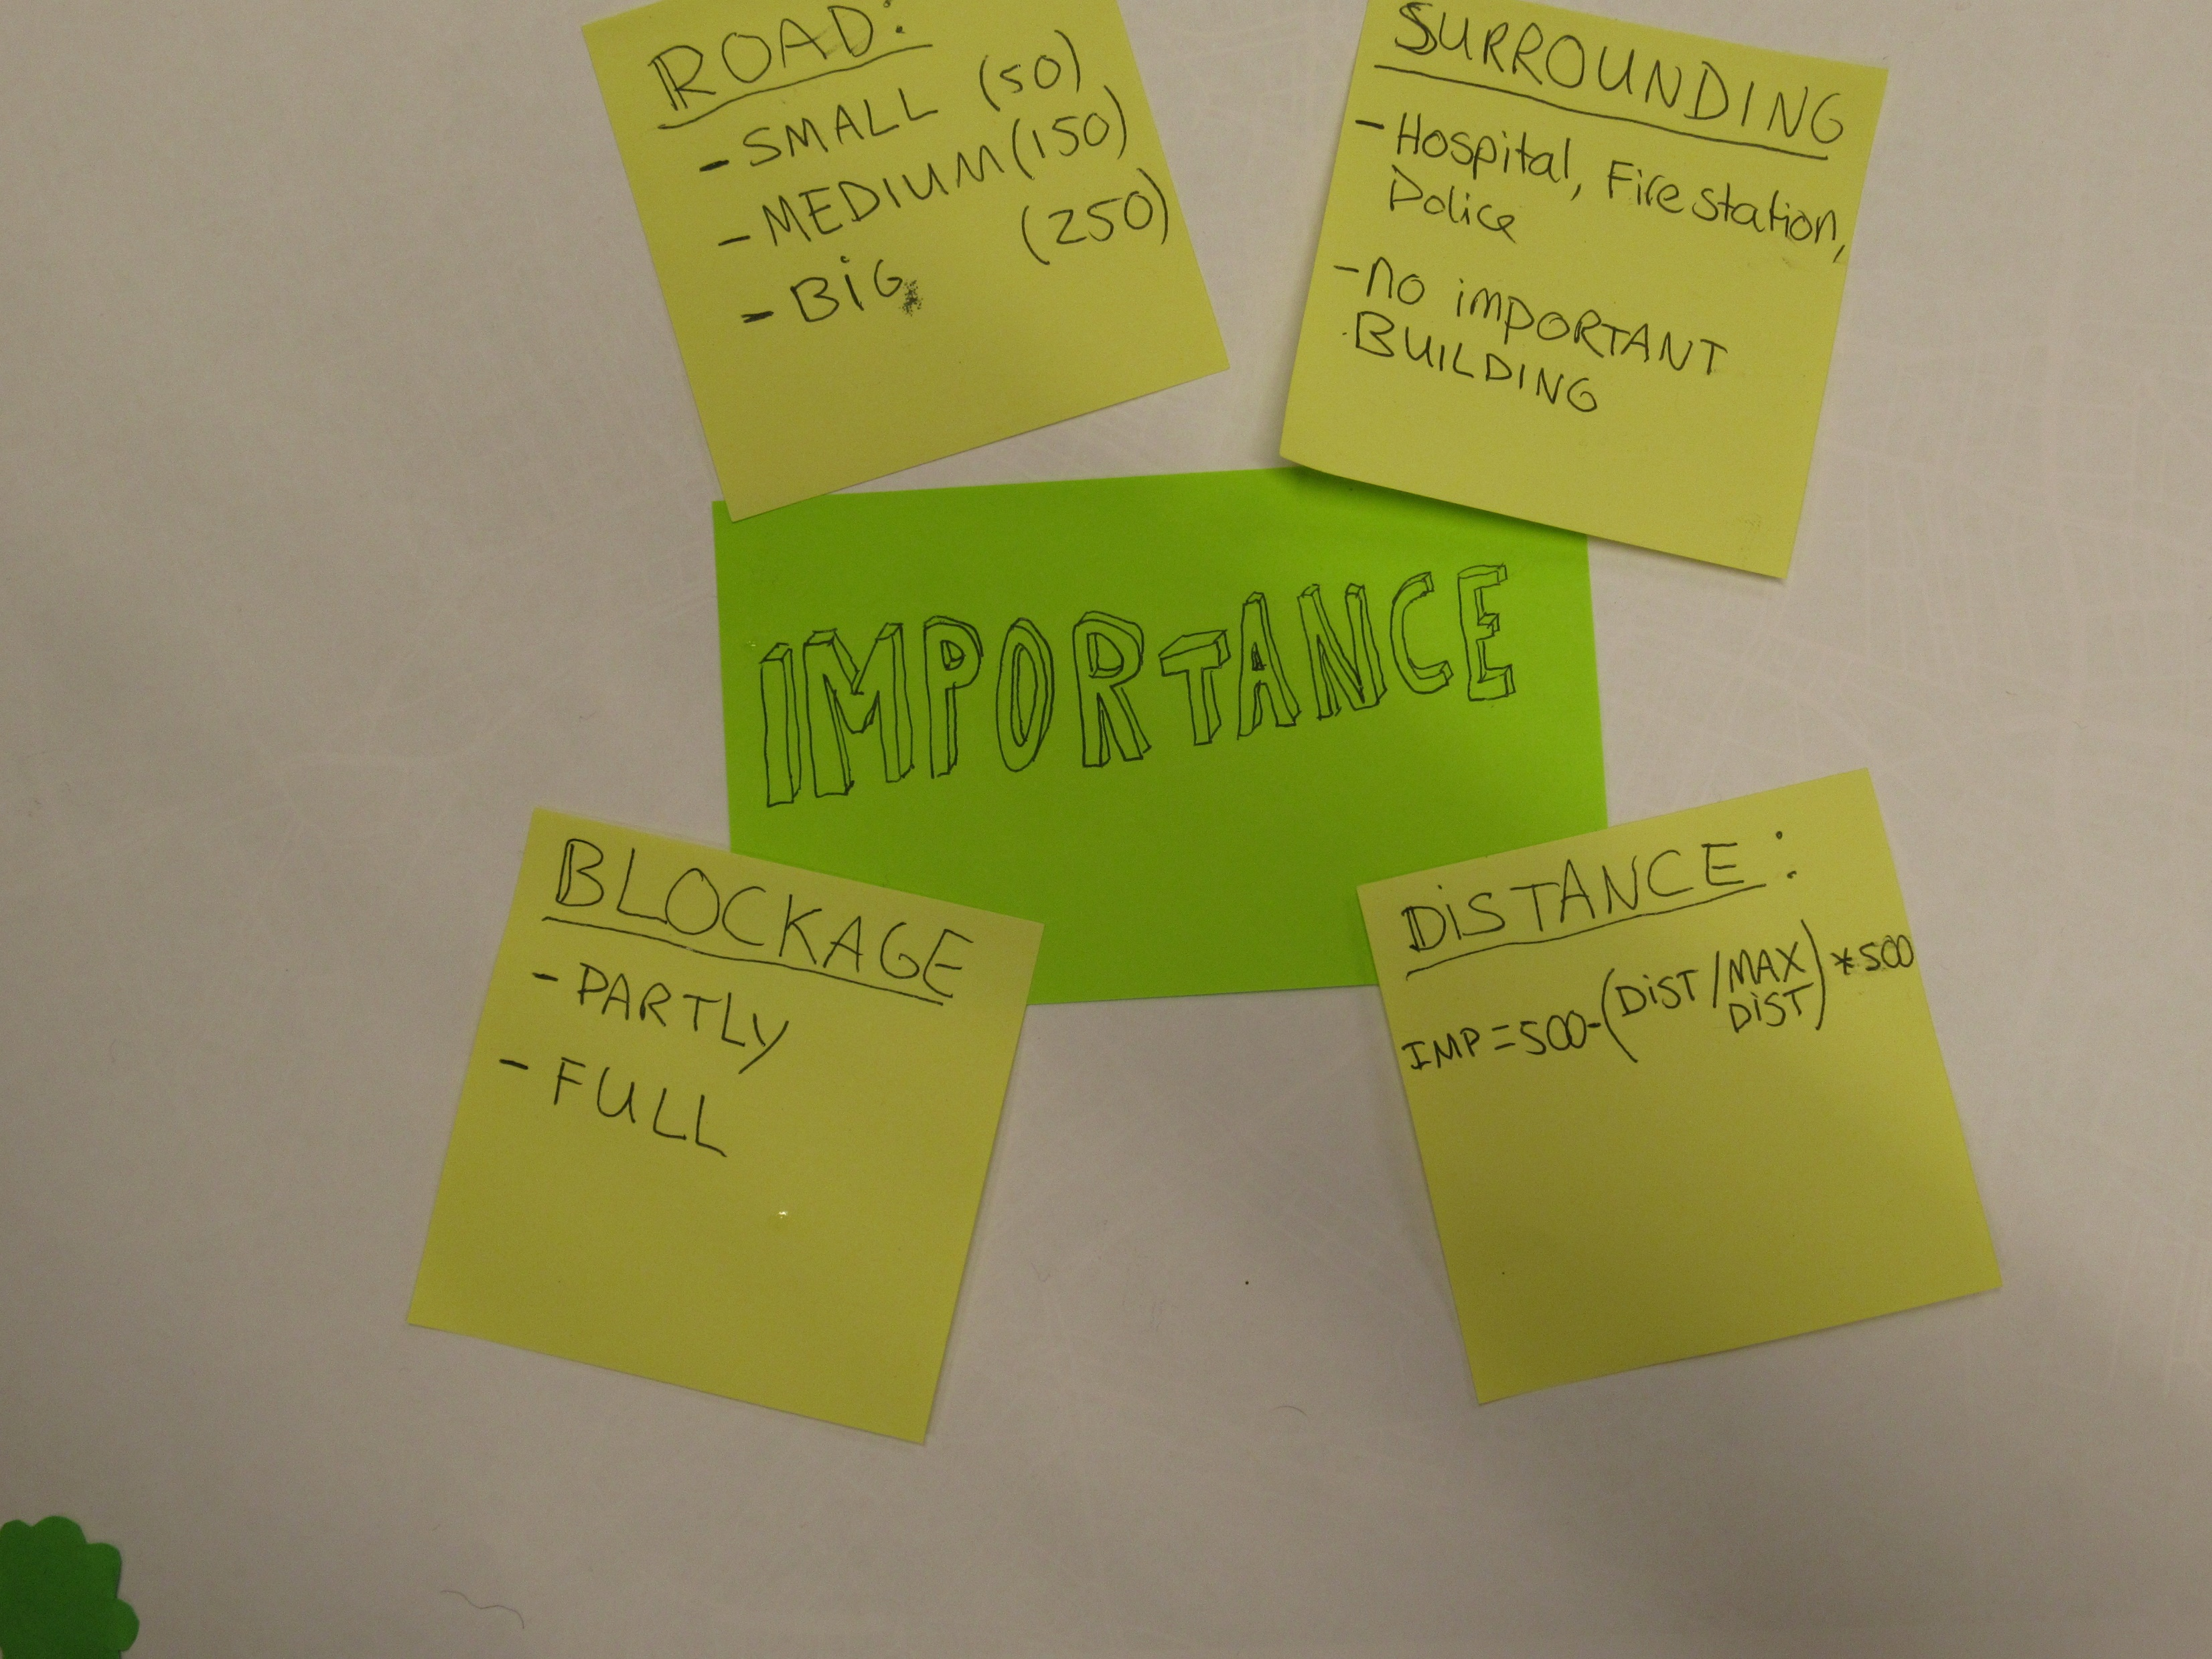 ROAD:
- SMALL (50)
- MEDIUM (150)
- BiG (250)
SURROUNDING
- Hospital, Fire station,
Police
- no imPORTANT
BUILDING
IMPORTANCE
BLOCKAGE
- PARTLY
- FULL
DiSTANCE:
IMP = 500 - (DiST / MAX DiST) * 500